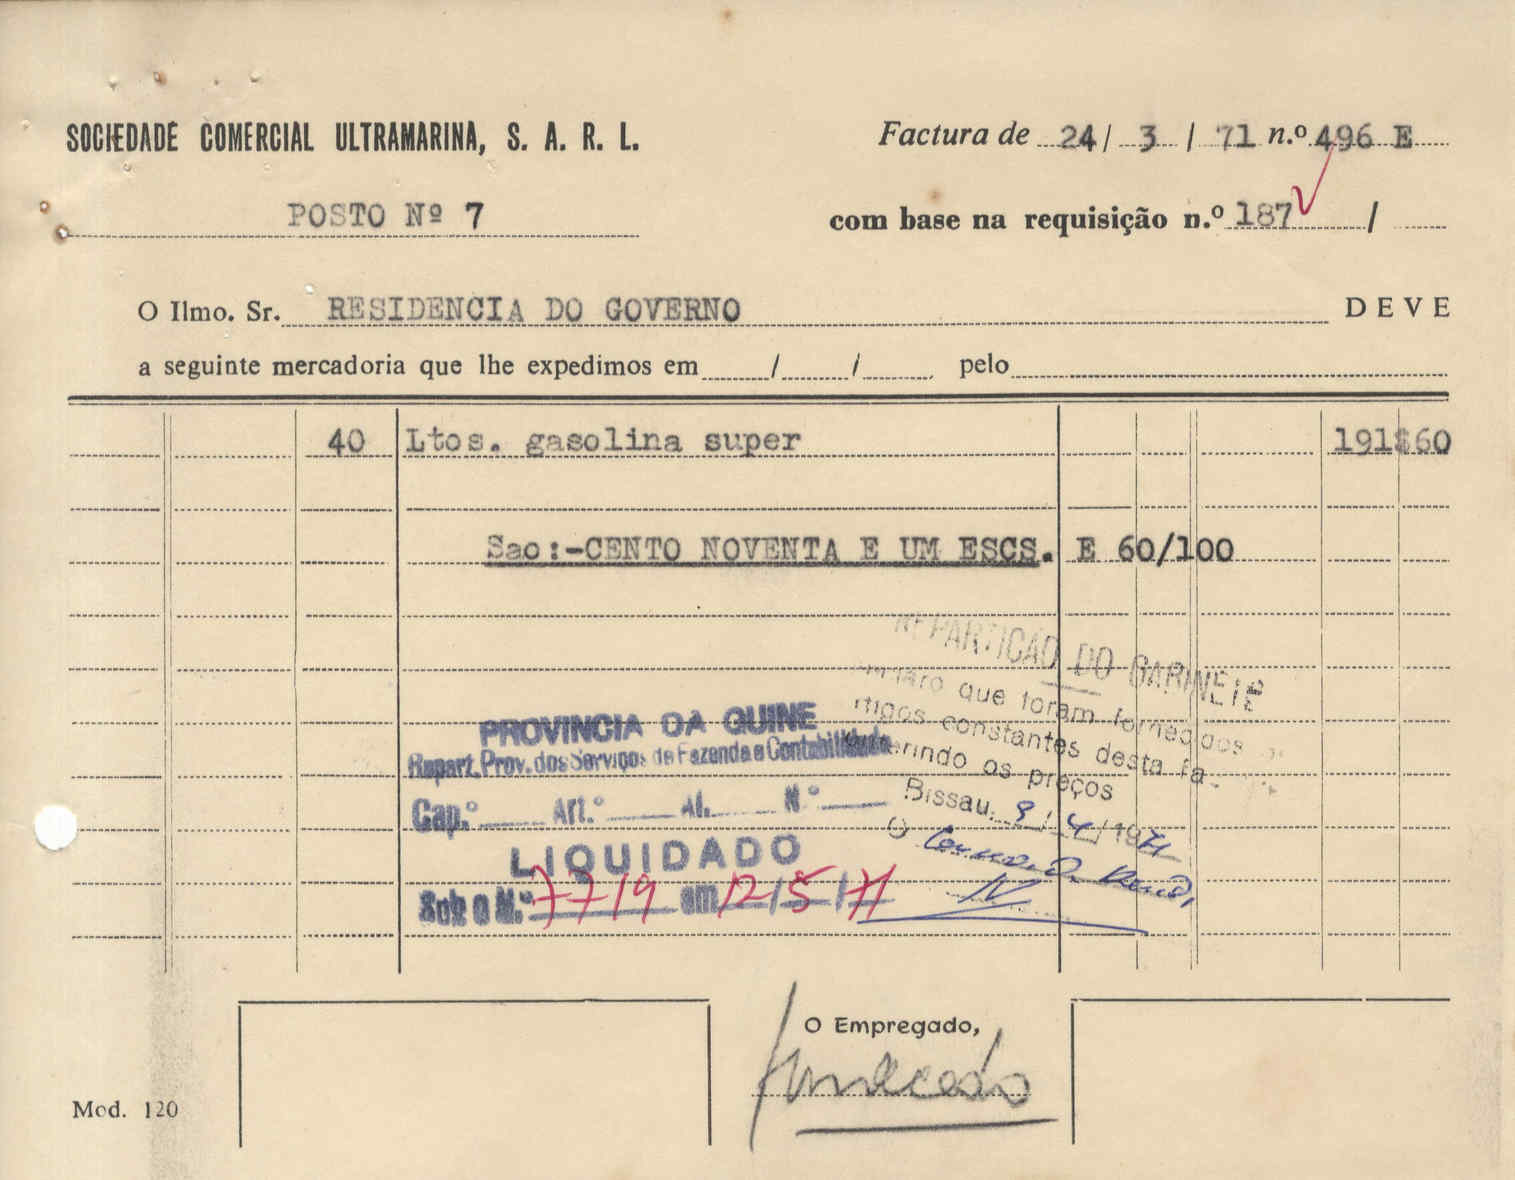 SOCIEDADE COMERCIAL ULTRAMARINA, S. A. R. L.
Factura de 24/ 3 / 71 n.º 496 E
POSTO Nº 7
com base na requisição n.º 187 /
O Ilmo. Sr. RESIDENCIA DO GOVERNO DEVE
a seguinte mercadoria que lhe expedimos em / / pelo
40 Ltos. gasolina super 191$60
Sao:-CENTO NOVENTA E UM ESCS. E 60/100
REPARTICAO DO GABINETE
que foram fornecidos
constantes desta
os preços
Bissau, 9/4/1971
O
PROVINCIA DA GUINE
Repart. Prov. dos Serviços de Fazenda e Contabilidade
Cap.º Art.º Al. N.º
LIQUIDADO
Sob o N.º 7719 em 12/5/71
O Empregado,
Mod. 120